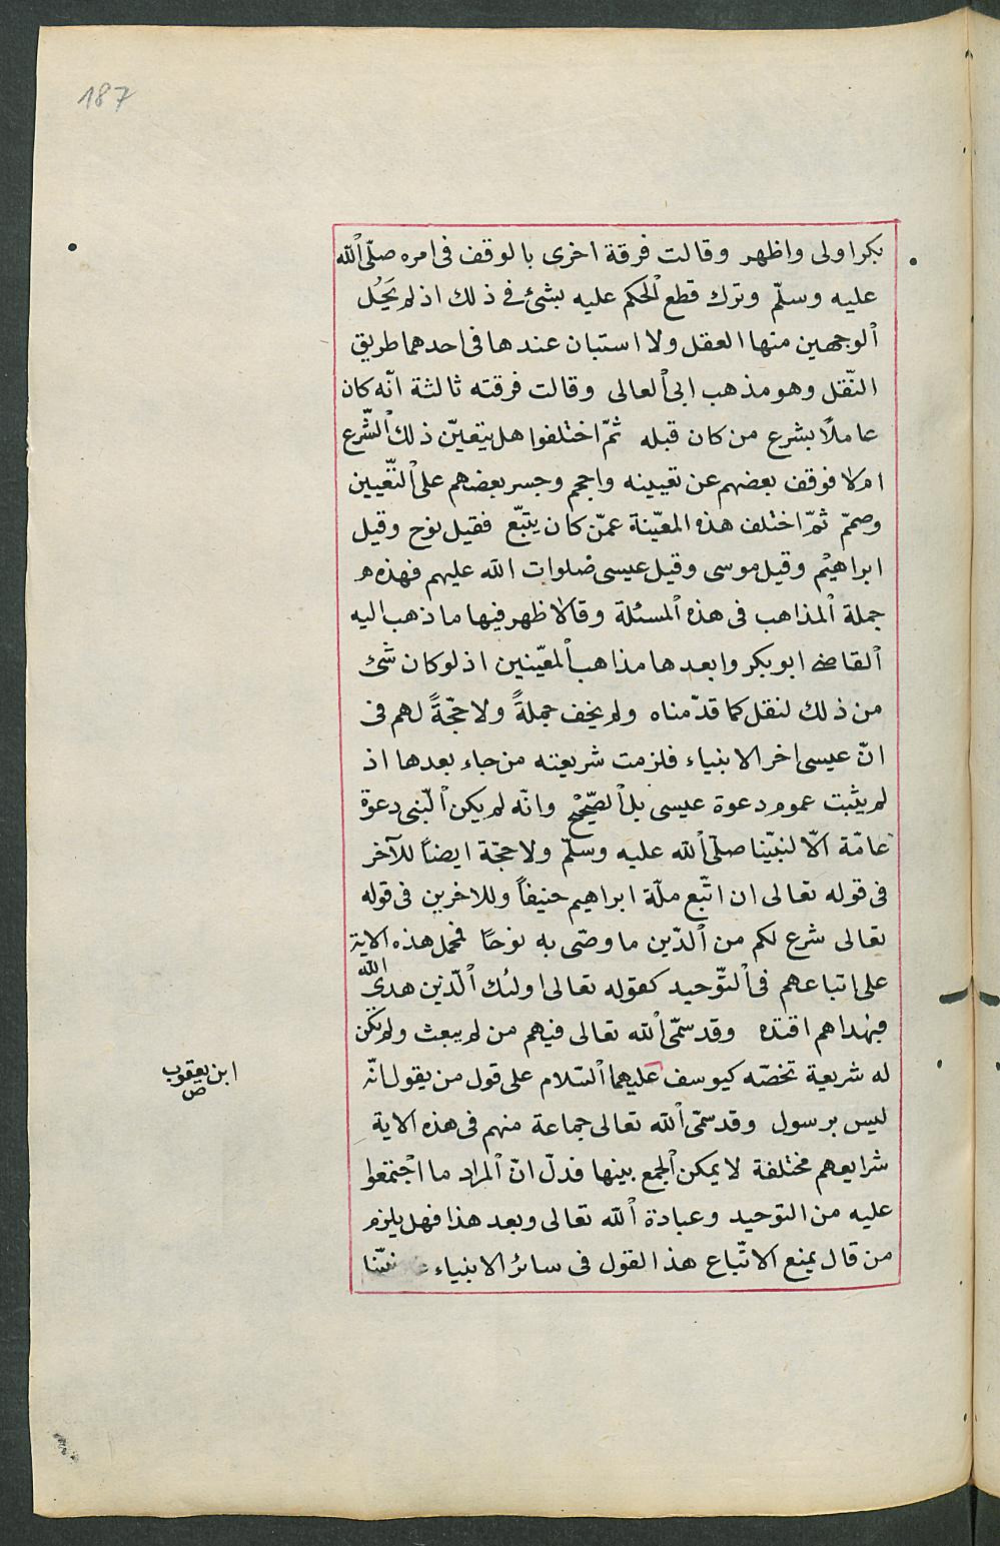 187
بكر اولى واظهر وقالت فرقة اخرى بالوقف فى امره صلّى الله
عليه وسلّم وترك قطع الحكم عليه بشئ فى ذلك اذ لم يَحُل
الوجهين منها العقل ولا استبان عندها فى احدهما طريق
النّقل وهو مذهب ابى العالى وقالت فرقته ثالثة انّه كان
عاملًا بشرع من كان قبله ثمّ اختلفوا هل يتعيّن ذلك الشّرع
ام لا فوقف بعضهم عن تعيينه واحجم وجسر بعضهم على التّعيين
وصمّم ثمّ اختلف هذه المعيّنة عمّن كان يتبّع فقيل نوح وقيل
ابراهيم وقيل موسى وقيل عيسى صلوات الله عليهم فهذه
جملة المذاهب فى هذه المسئلة وقالاظهر فيها ما ذهب اليه
القاضى ابو بكر وابعدها مذاهب المعيّنين اذ لو كان شئ
من ذلك لنقل كما قدّمناه ولم يخف جملةً ولا حجّةً لهم فى
انّ عيسى اخر الانبياء فلزمت شريعته من جاء بعدها اذ
لم يثبت عموم دعوة عيسى بل الصّحيح وانّه لم يكن النّبى دعوة
عامّة الّا لنبيّنا صلّى الله عليه وسلّم ولا حجّة ايضاً للآخر
فى قوله تعالى ان اتّبع ملّة ابراهيم حنيفاً وللاخرين فى قوله
تعالى شرع لكم من الدّين ما وصّى به نوحًا فحمل هذه الاية
على اتباعهم فى التّوحيد كقوله تعالى اولئك الّذين هدى الله
فبهداهم اقتده وقد سمّى الله تعالى فيهم من لم يبعث ولم تكن
له شريعة تخصّه كيوسف عليهما السّلام على قول من يقول انّه
ابن يعقوب
ص
ليس برسول وقد سمّى الله تعالى جماعة منهم فى هذه الاية
شرايعهم مختلفة لا يمكن الجمع بينها فدلّ انّ المراد ما اجتمعوا
عليه من التوحيد وعبادة الله تعالى وبعد هذا فهل يلزم
من قال يمنع الاتّباع هذا القول فى سائر الانبياء نبيّنا